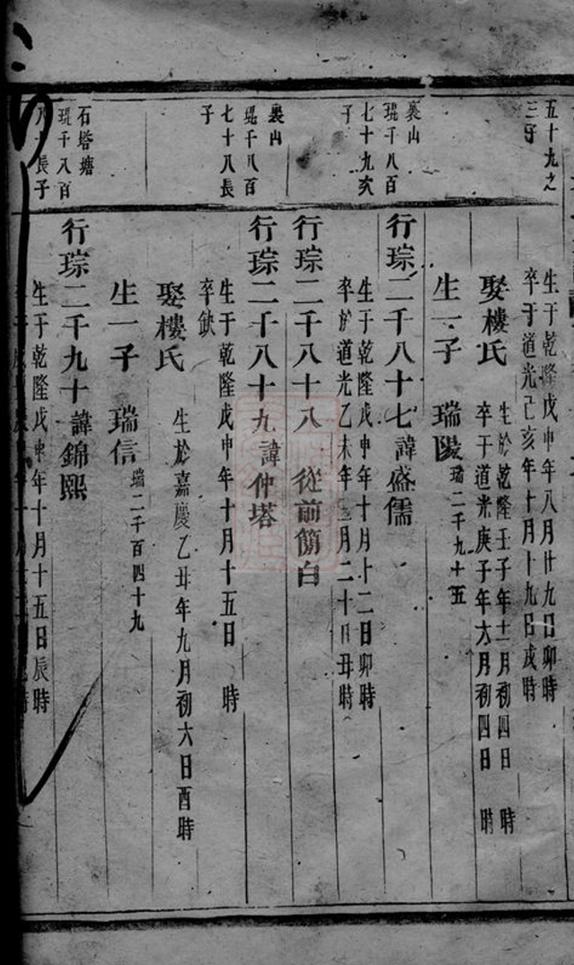 五十九之
三子
生于乾隆戊申年八月廿九日卯時
卒于道光己亥年十月十九日戌時
娶樓氏
生於乾隆壬子年十二月初四日 時
卒于道光庚子年六月初四日 時
生一子 瑞陽 瑞二千九十五
裏山
琨千八百
七十九次
子
行琮二千八十七諱盛儒
生于乾隆戊申年十月十二日卯時
卒於道光乙未年 月二十日丑時
行琮二千八十八 從前箾白
裏山
琨千八百
七十八長
子
行琮二千八十九諱仲塔
生于乾隆戊申年十月十五日 時
卒缺
娶樓氏
生於嘉慶乙丑年九月初六日酉時
生一子 瑞信 瑞二千百四十九
石塔塘
琨千八百
八十長子
行琮二千九十諱錦熙
生于乾隆戊申年十月十五日辰時